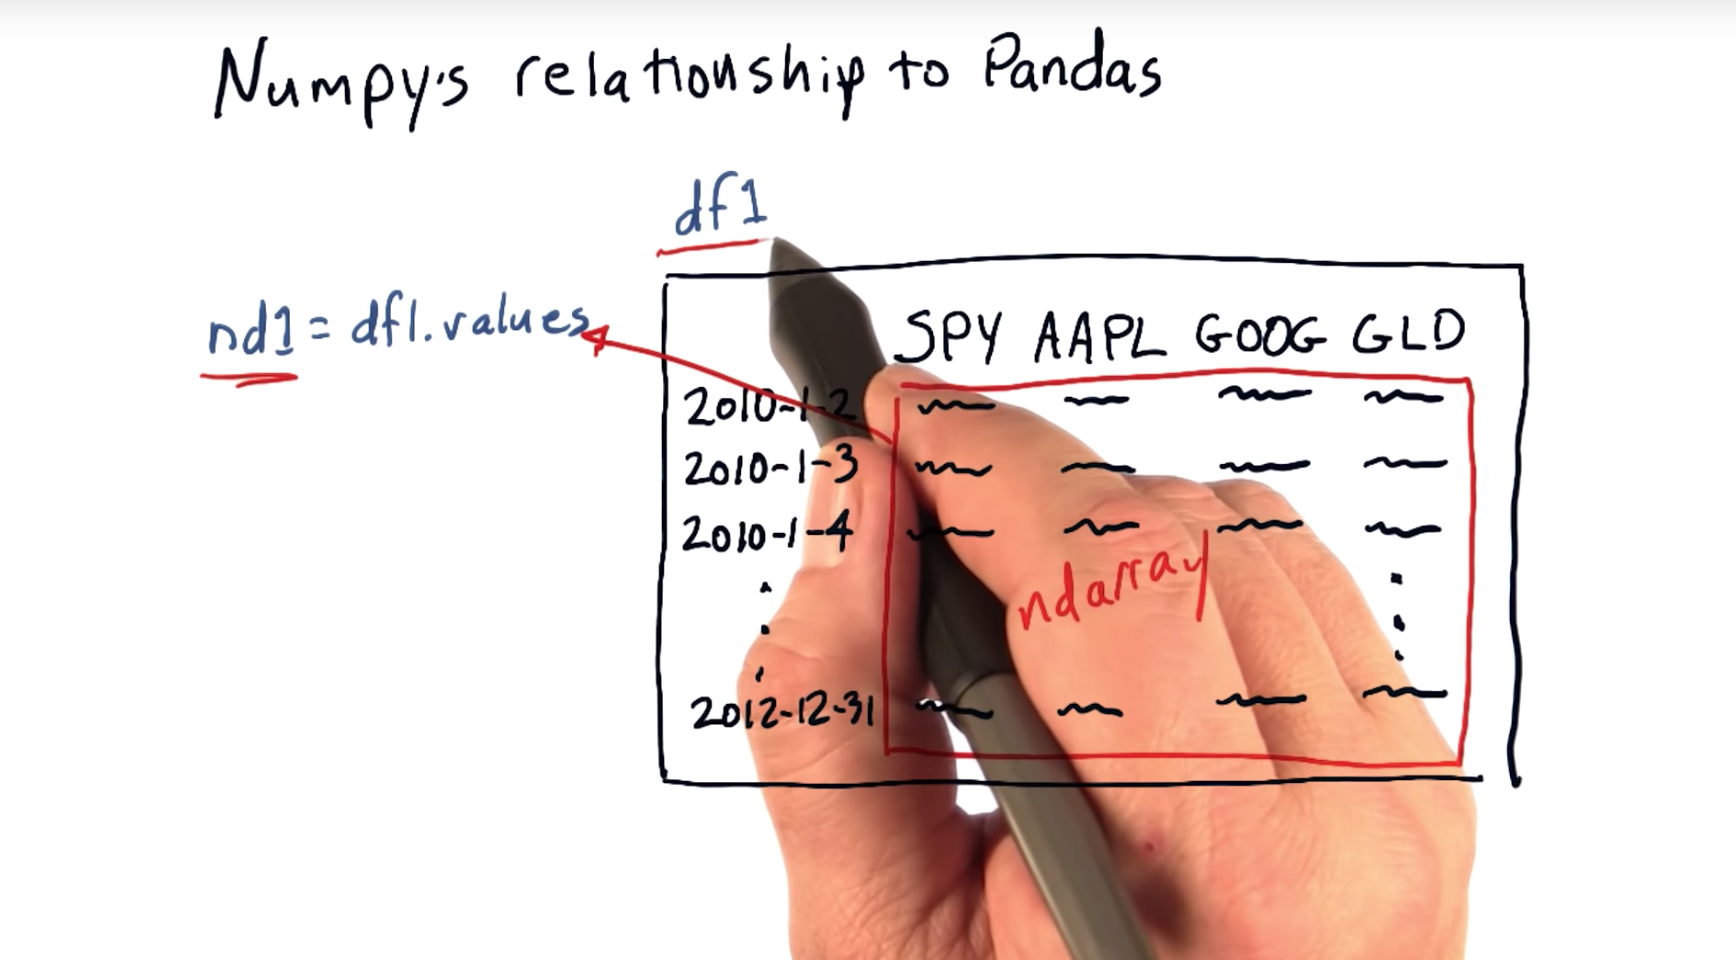 Numpy's relationship to Pandas
df1
nd1 = df1.values
SPY AAPL GOOG GLD
2010-1-2
2010-1-3
2010-1-4
ndarray
2012-12-31